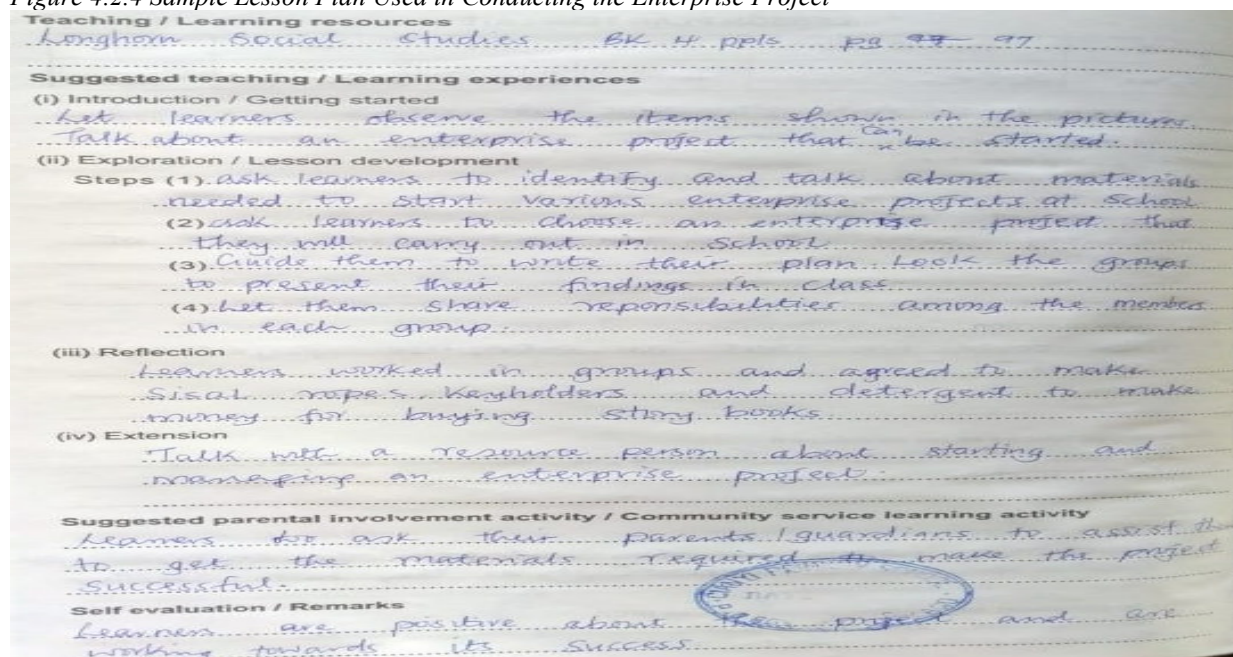 Figure 4.2.4 Sample Lesson Plan Used in Conducting the Enterprise Project
Teaching / Learning resources
Longhorn Social studies BK 4 ppls pg 97
Suggested teaching / Learning experiences
(i) Introduction / Getting started
Let learners observe the items shown in the pictures
Talk about an enterprise project that can be started.
(ii) Exploration / Lesson development
Steps (1) ask learners to identify and talk about materials
needed to start various enterprise projects at school
(2) ask learners to choose an enterprise project that
they will carry out in school
(3) Guide them to write their plan the groups
to present their findings in class
(4) Let them share reponsibilities among the members
in each group.
(iii) Reflection
Learners worked in groups and agreed to make
Sisal ropes, Keyholders and detergent to make
money for buying story books
(iv) Extension
Talk with a resource person about starting and
managing an enterprise project.
Suggested parental involvement activity / Community service learning activity
Learners to ask their parents / guardians to assist
to get the materials required to make the project
successful.
Self evaluation / Remarks
Learners are positive about project and are
working towards its success